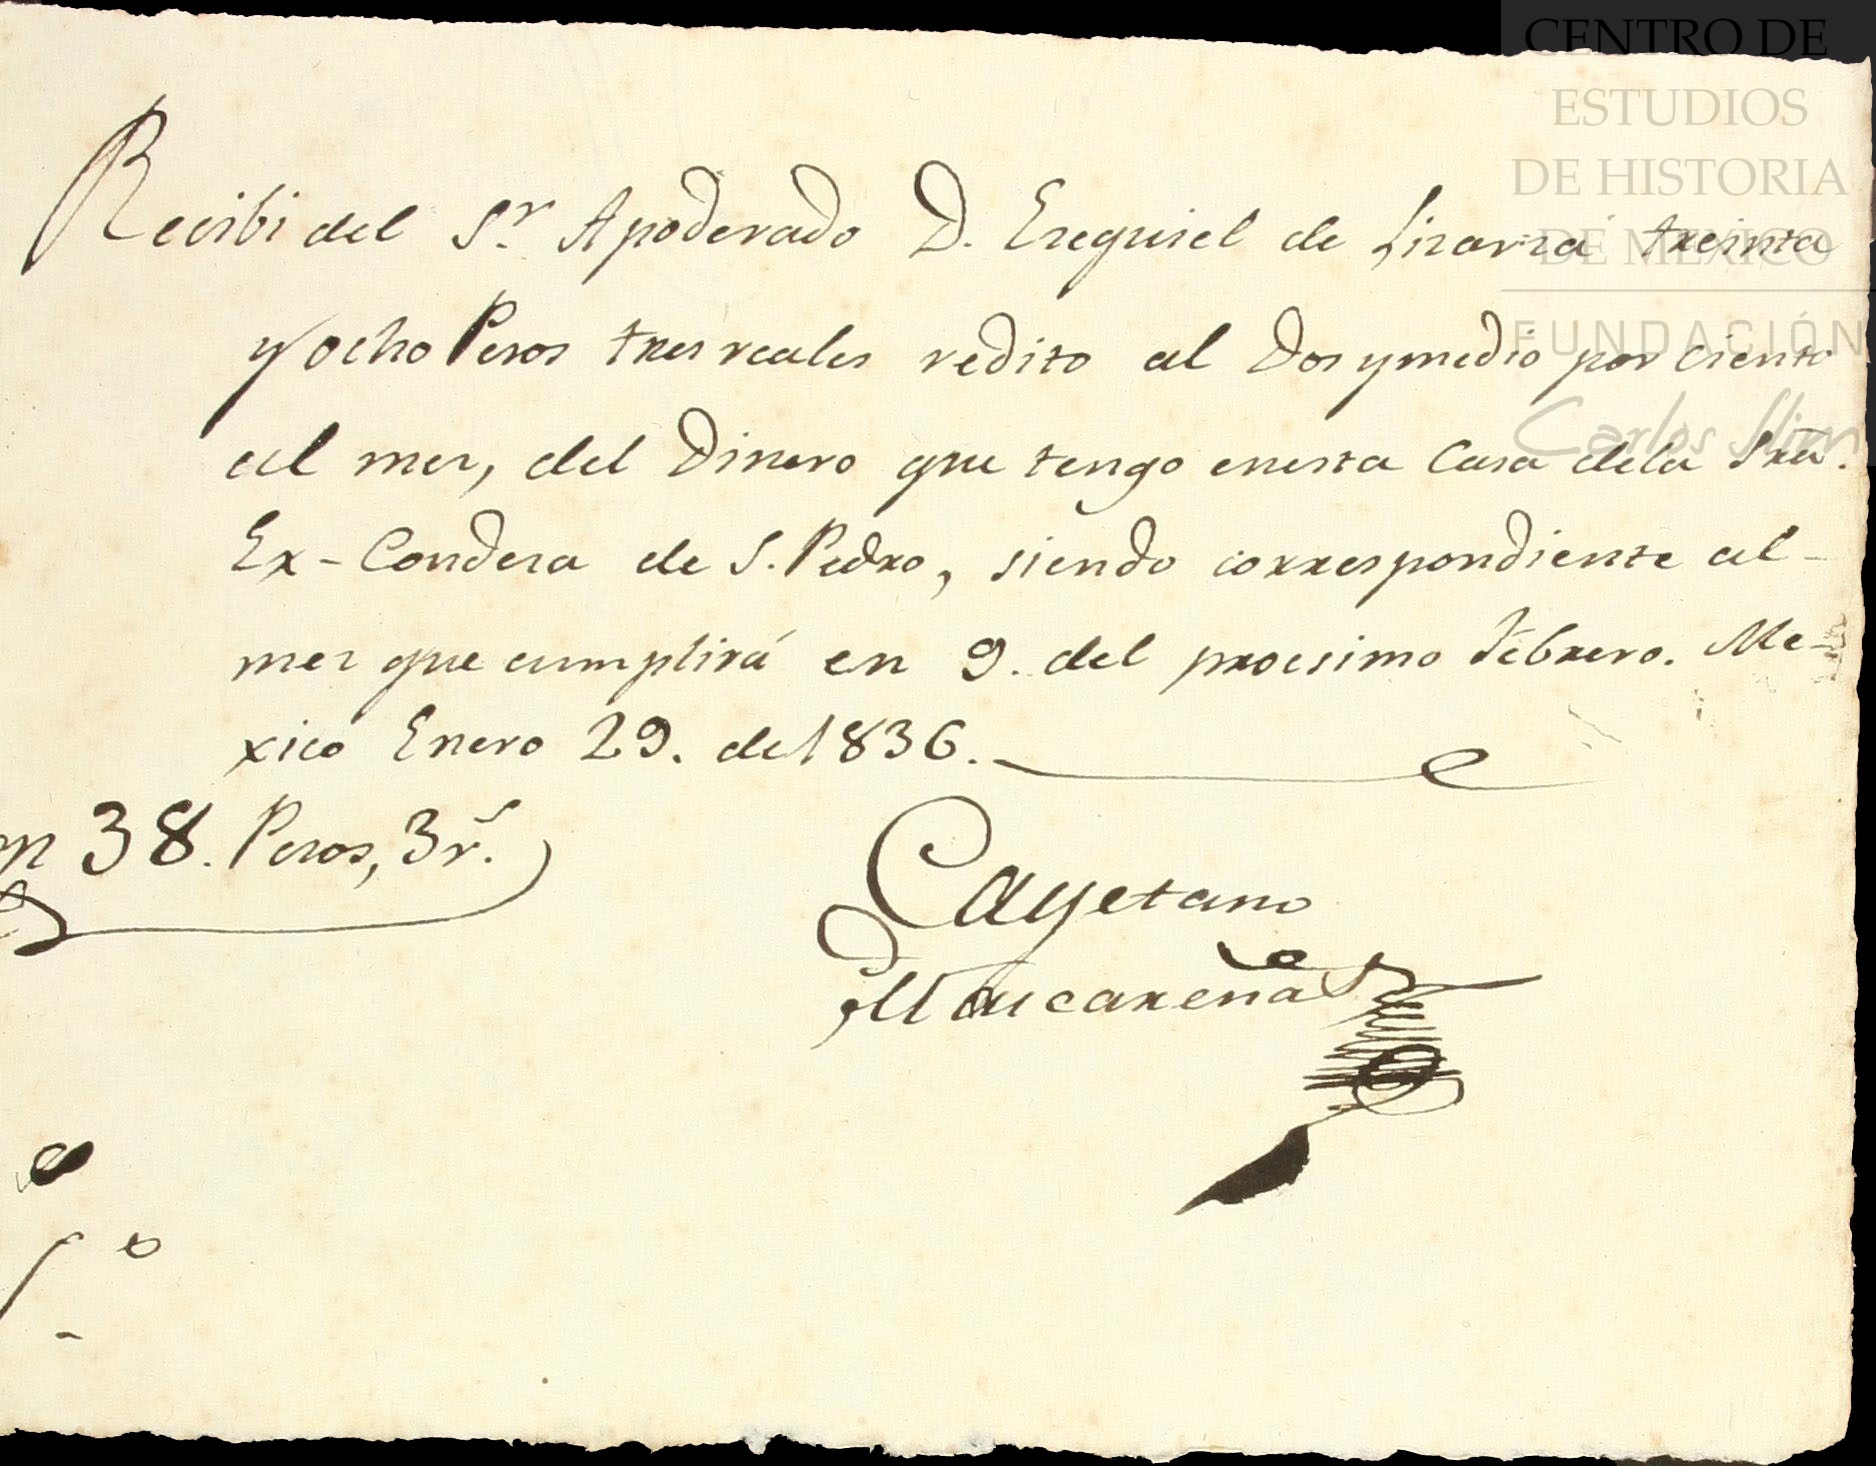 CENTRO DE
ESTUDIOS
DE HISTORIA
DE MÉXICO
FUNDACIÓN
Carlos Slim
Recibi del Sr. Apoderado D. Ezequiel de Lizarza treinta
y ocho Pesos tres reales redito al Dos y medio por Ciento
al mes, del Dinero que tengo enesta Casa dela Sra.
Ex-Condesa de S. Pedro, siendo correspondiente al-
mes que cumplirá en 9. del procsimo Febrero. Me-
xico Enero 29. de 1836.
38. Pesos, 3 rs.
Cayetano
Mascareñas